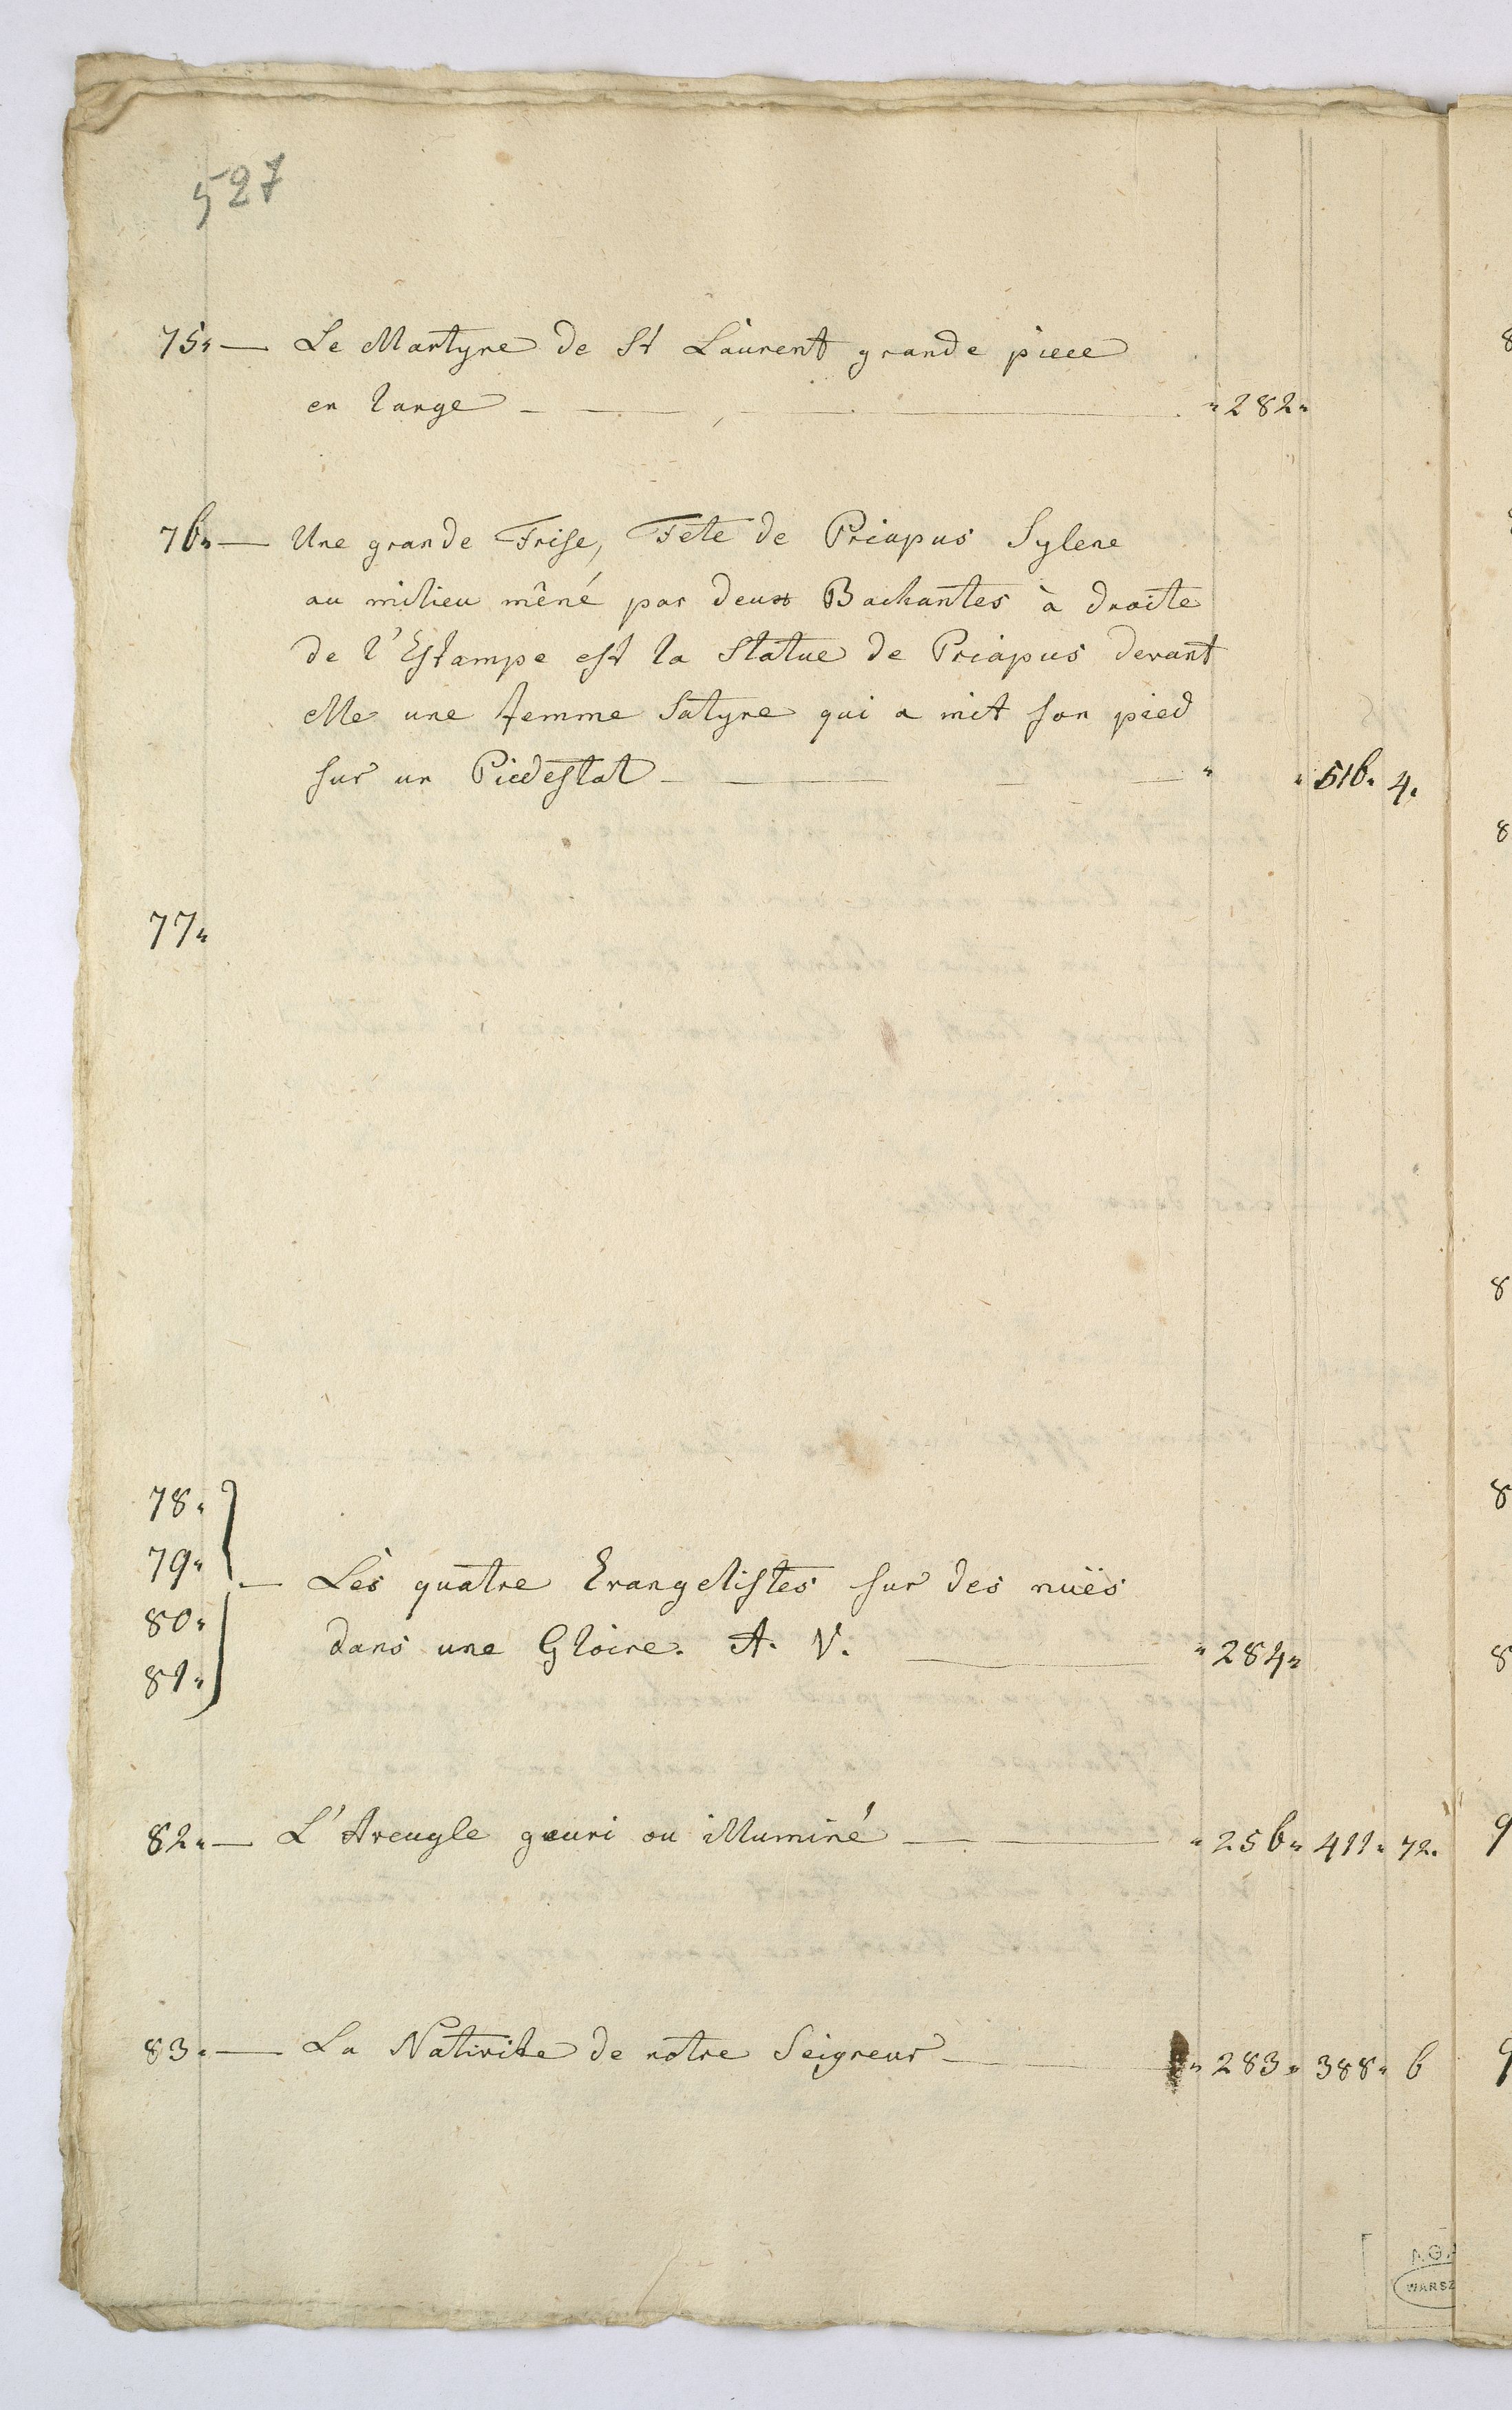 527
75 — Le Martyre de St Laurent grande piece
en large — " 282 "
76 — Une grande Frise, Fete de Priapus Sylene
au milieu mêné par deux Backantes à droite
de l'Estampe est la Statue de Priapus devant
elle une femme Satyre qui a mit son pied
sur un Piedestal — " " 516 " 4.
77 "
78 "
79 "
— Lès quatre Evangelistes sur des nuës
80 "
dans une Gloire. A. V. — " 284 "
81 "
82 " — L'Aveugle gueuri ou illuminé — " 256 " 411 " 72.
83 " — La Nativite de notre Seigneur — " 283 " 388 " 6
AGA
WARSZ